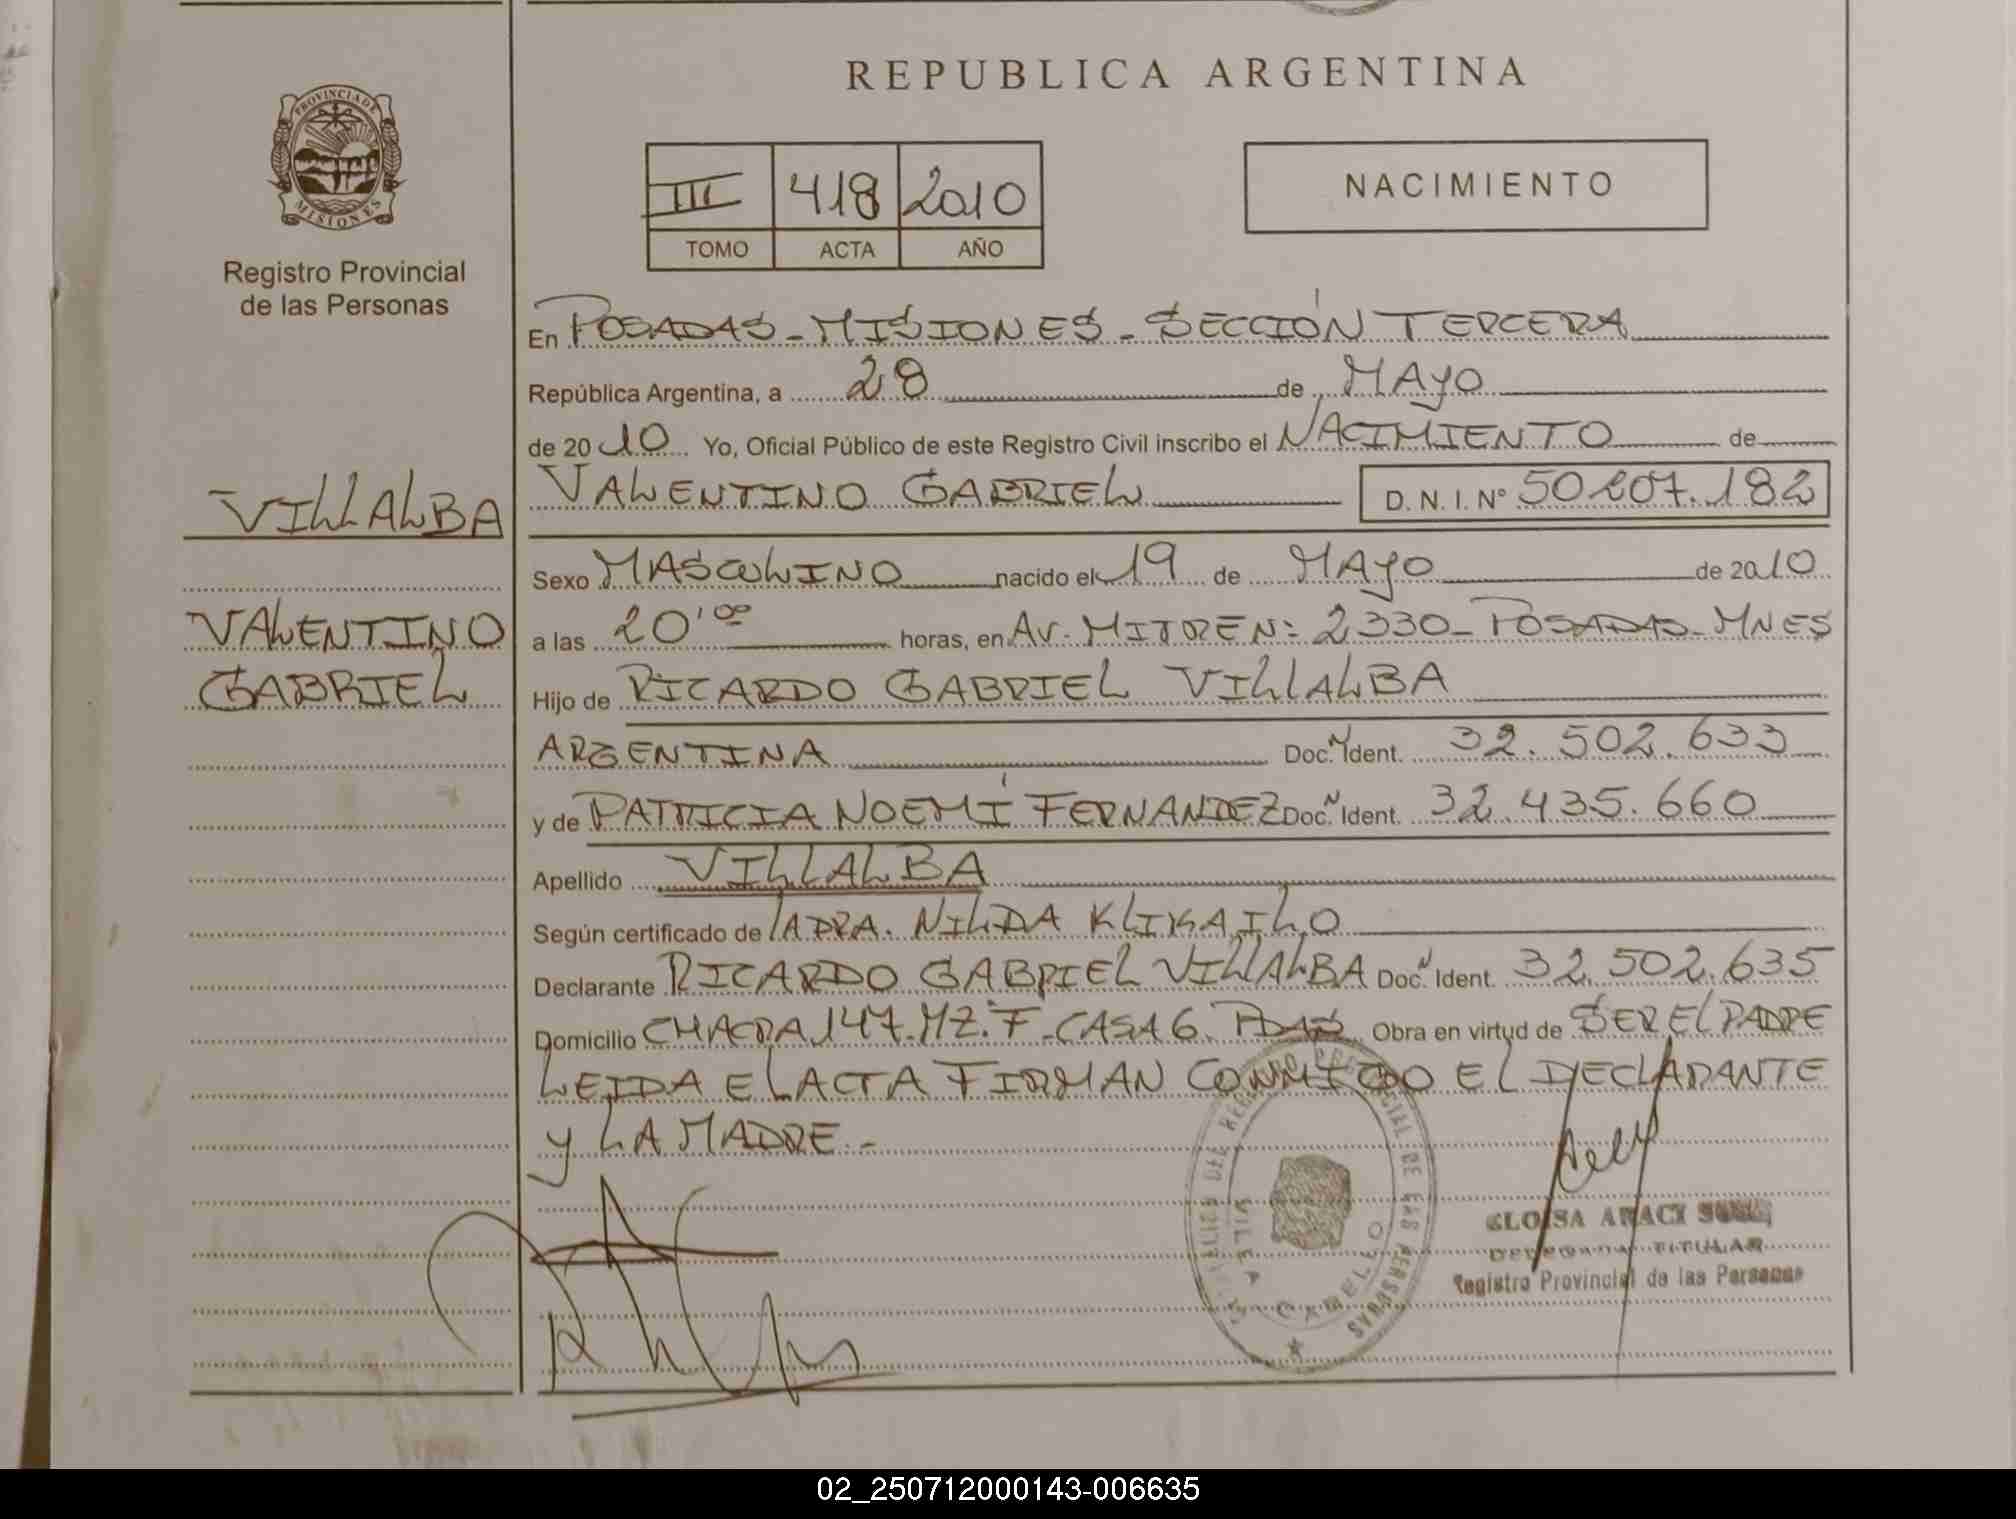 REPUBLICA ARGENTINA
PROVINCIA DE
MISIONES
Registro Provincial
de las Personas
III 418 2010
TOMO ACTA AÑO
NACIMIENTO
VILLALBA
VALENTINO
GABRIEL
En POSADAS - MISIONES - SECCIÓN TERCERA
República Argentina, a 28 de MAYO
de 2010 Yo, Oficial Público de este Registro Civil inscribo el NACIMIENTO de
VALENTINO GABRIEL D. N. I. N° 50207.182
Sexo MASCULINO nacido el 19 de MAYO de 2010
a las 20'00 horas, en AV. MITRE N: 2330 - POSADAS - MNES
Hijo de RICARDO GABRIEL VILLALBA
ARGENTINA Doc. Ident. 32.502.633
y de PATRICIA NOEMÍ FERNANDEZ Doc. Ident. 32.435.660
Apellido VILLALBA
Según certificado de LA DRA. NILDA
Declarante RICARDO GABRIEL VILLALBA Doc. Ident. 32.502.635
Domicilio CHACRA 147. MZ. F - CASA 6. PDAS Obra en virtud de SER EL PADRE
LEIDA EL ACTA FIRMAN CONMIGO EL DECLARANTE
Y LA MADRE.-
ELOISA ARACI
DELEGADA TITULAR
Registro Provincial de las Personas
REGISTRO PROVINCIAL DE LAS PERSONAS
VILLA CABELLO
02_250712000143-006635